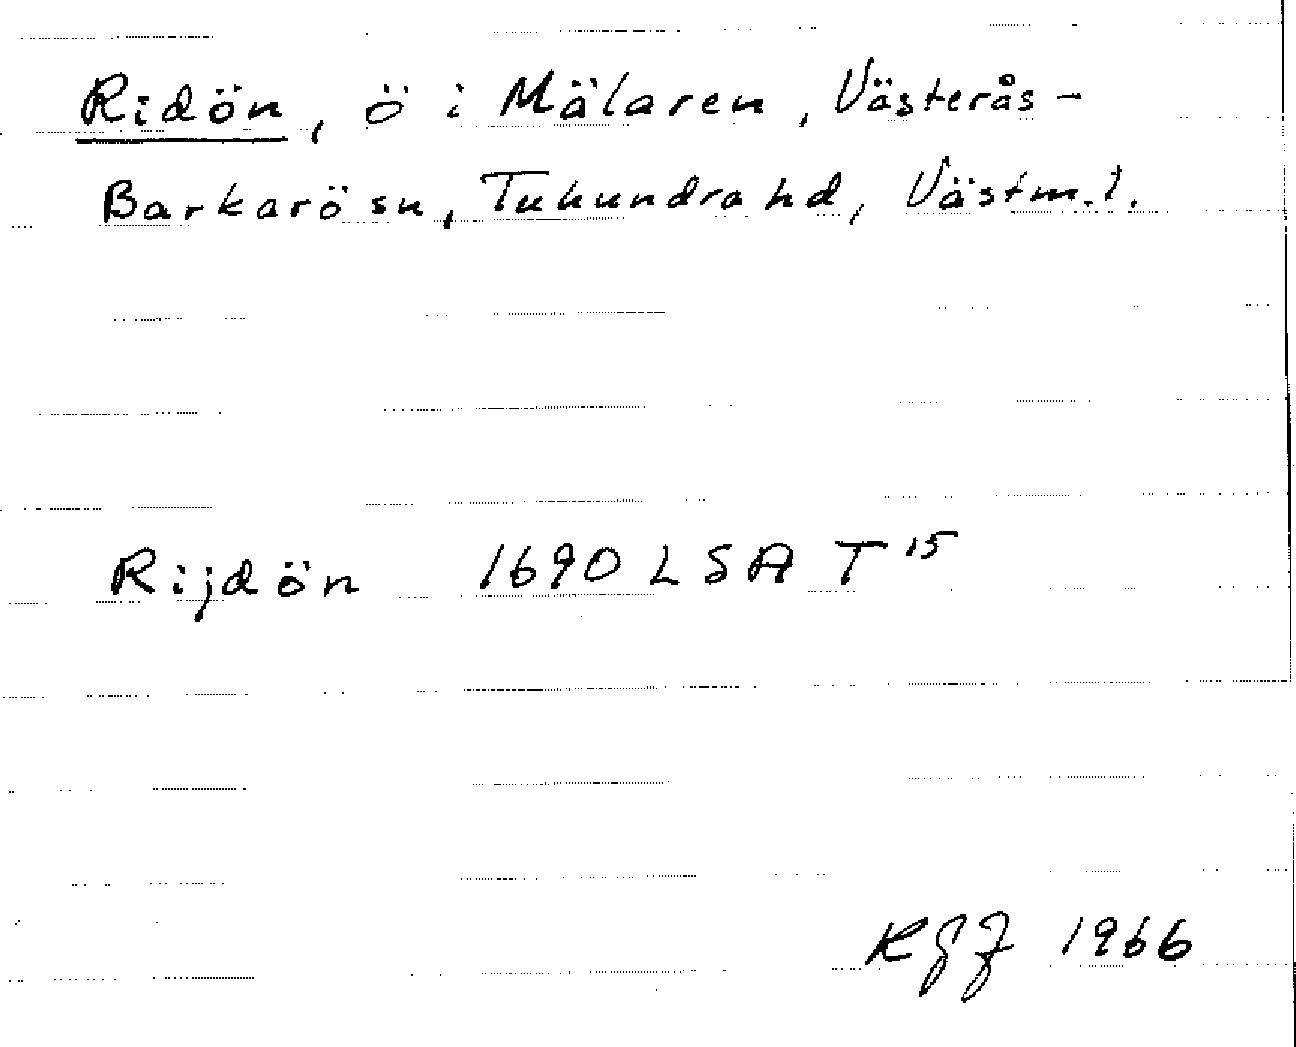 Ridön, ö i Mälaren, Västerås-
Barkarö sn, Tuhundra hd, Västm.l.
Rijdön 1690 LSA T 15
1966